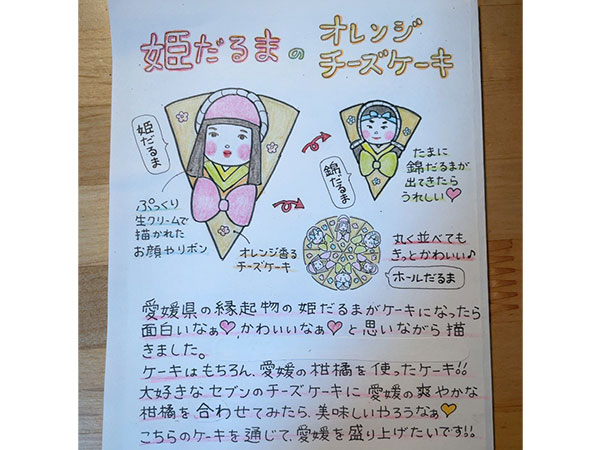 姫だるまの
オレンジ
チーズケーキ
姫だるま
ぷっくり
生クリームで
描かれた
お顔やリボン
オレンジ香る
チーズケーキ
錦だるま
たまに
錦だるまが
出てきたら
うれしい♡
丸く並べても
きっとかわいい♪
ホールだるま
愛媛県の縁起物の姫だるまがケーキになったら
面白いなぁ♡、かわいいなぁ♡と思いながら描
きました。
ケーキはもちろん、愛媛の柑橘を使ったケーキ!!
大好きなセブンのチーズケーキに愛媛の爽やかな
柑橘を合わせてみたら、美味しいやろうなぁ♡
こちらのケーキを通じて、愛媛を盛り上げたいです!!